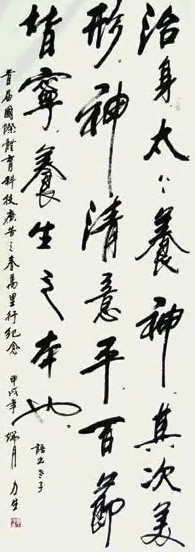 治身太上養神其次美
形神清意平百節
皆寧養生之本也
語出文子
首届國際體育科技廣告之春萬里行紀念
甲戌年端月力生